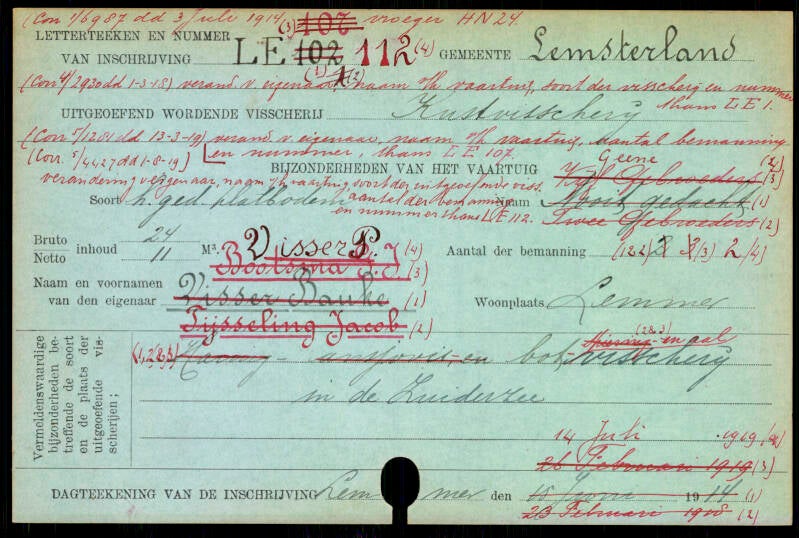 (Corr 1/6987 dd 3 Juli 1914 (3) 107 vroeger HN 24.
LETTERTEEKEN EN NUMMER
VAN INSCHRIJVING LE 102 112 (4) GEMEENTE Lemsterland
(1) 1 (2)
(Corr 4/2930 dd 1-3-18) verand v eigenaar, naam v/h vaartuig, soort der visscherij en nummer
thans LE 1.
UITGEOEFEND WORDENDE VISSCHERIJ Kustvisscherij
(Corr 5/1281 dd 13-3-19) verand v eigenaar, naam v/h vaartuig, aantal bemanning
en nummer, thans LE 107.
(Corr. 5/4427 dd 1-8-19)
Geene
BIJZONDERHEDEN VAN HET VAARTUIG Gebroeders (3)
verandering v eigenaar, naam v/h vaartuig, soort der uitgeoefende viss.
aantal der bemanning
en nummer thans LE 112.
Soort h. ged. platbodem Naam Nooit gedacht (1)
Twee Gebroeders (2)
Bruto 24
Netto inhoud 11 M³.
Visser P. (4)
Bootsma J. (3)
Aantal der bemanning (1 2 2) 2 3 (3) 2 (4)
Naam en voornamen
van den eigenaar Visser Bauke (1)
Tijsseling Jacob (2)
Woonplaats Lemmer
Vermeldenswaardige
bijzonderheden be-
treffende de soort
en de plaats der
uitgeoefende vis-
scherijen;
(2 & 3)
Haring- ansjovis- en bot- Spiering- en aal
visscherij
in de Zuiderzee
14 Juli 1919 (4)
26 Februari 1919 (3)
DAGTEEKENING VAN DE INSCHRIJVING Lemmer den 18 Juni 1914 (1)
23 Februari 1918 (2)